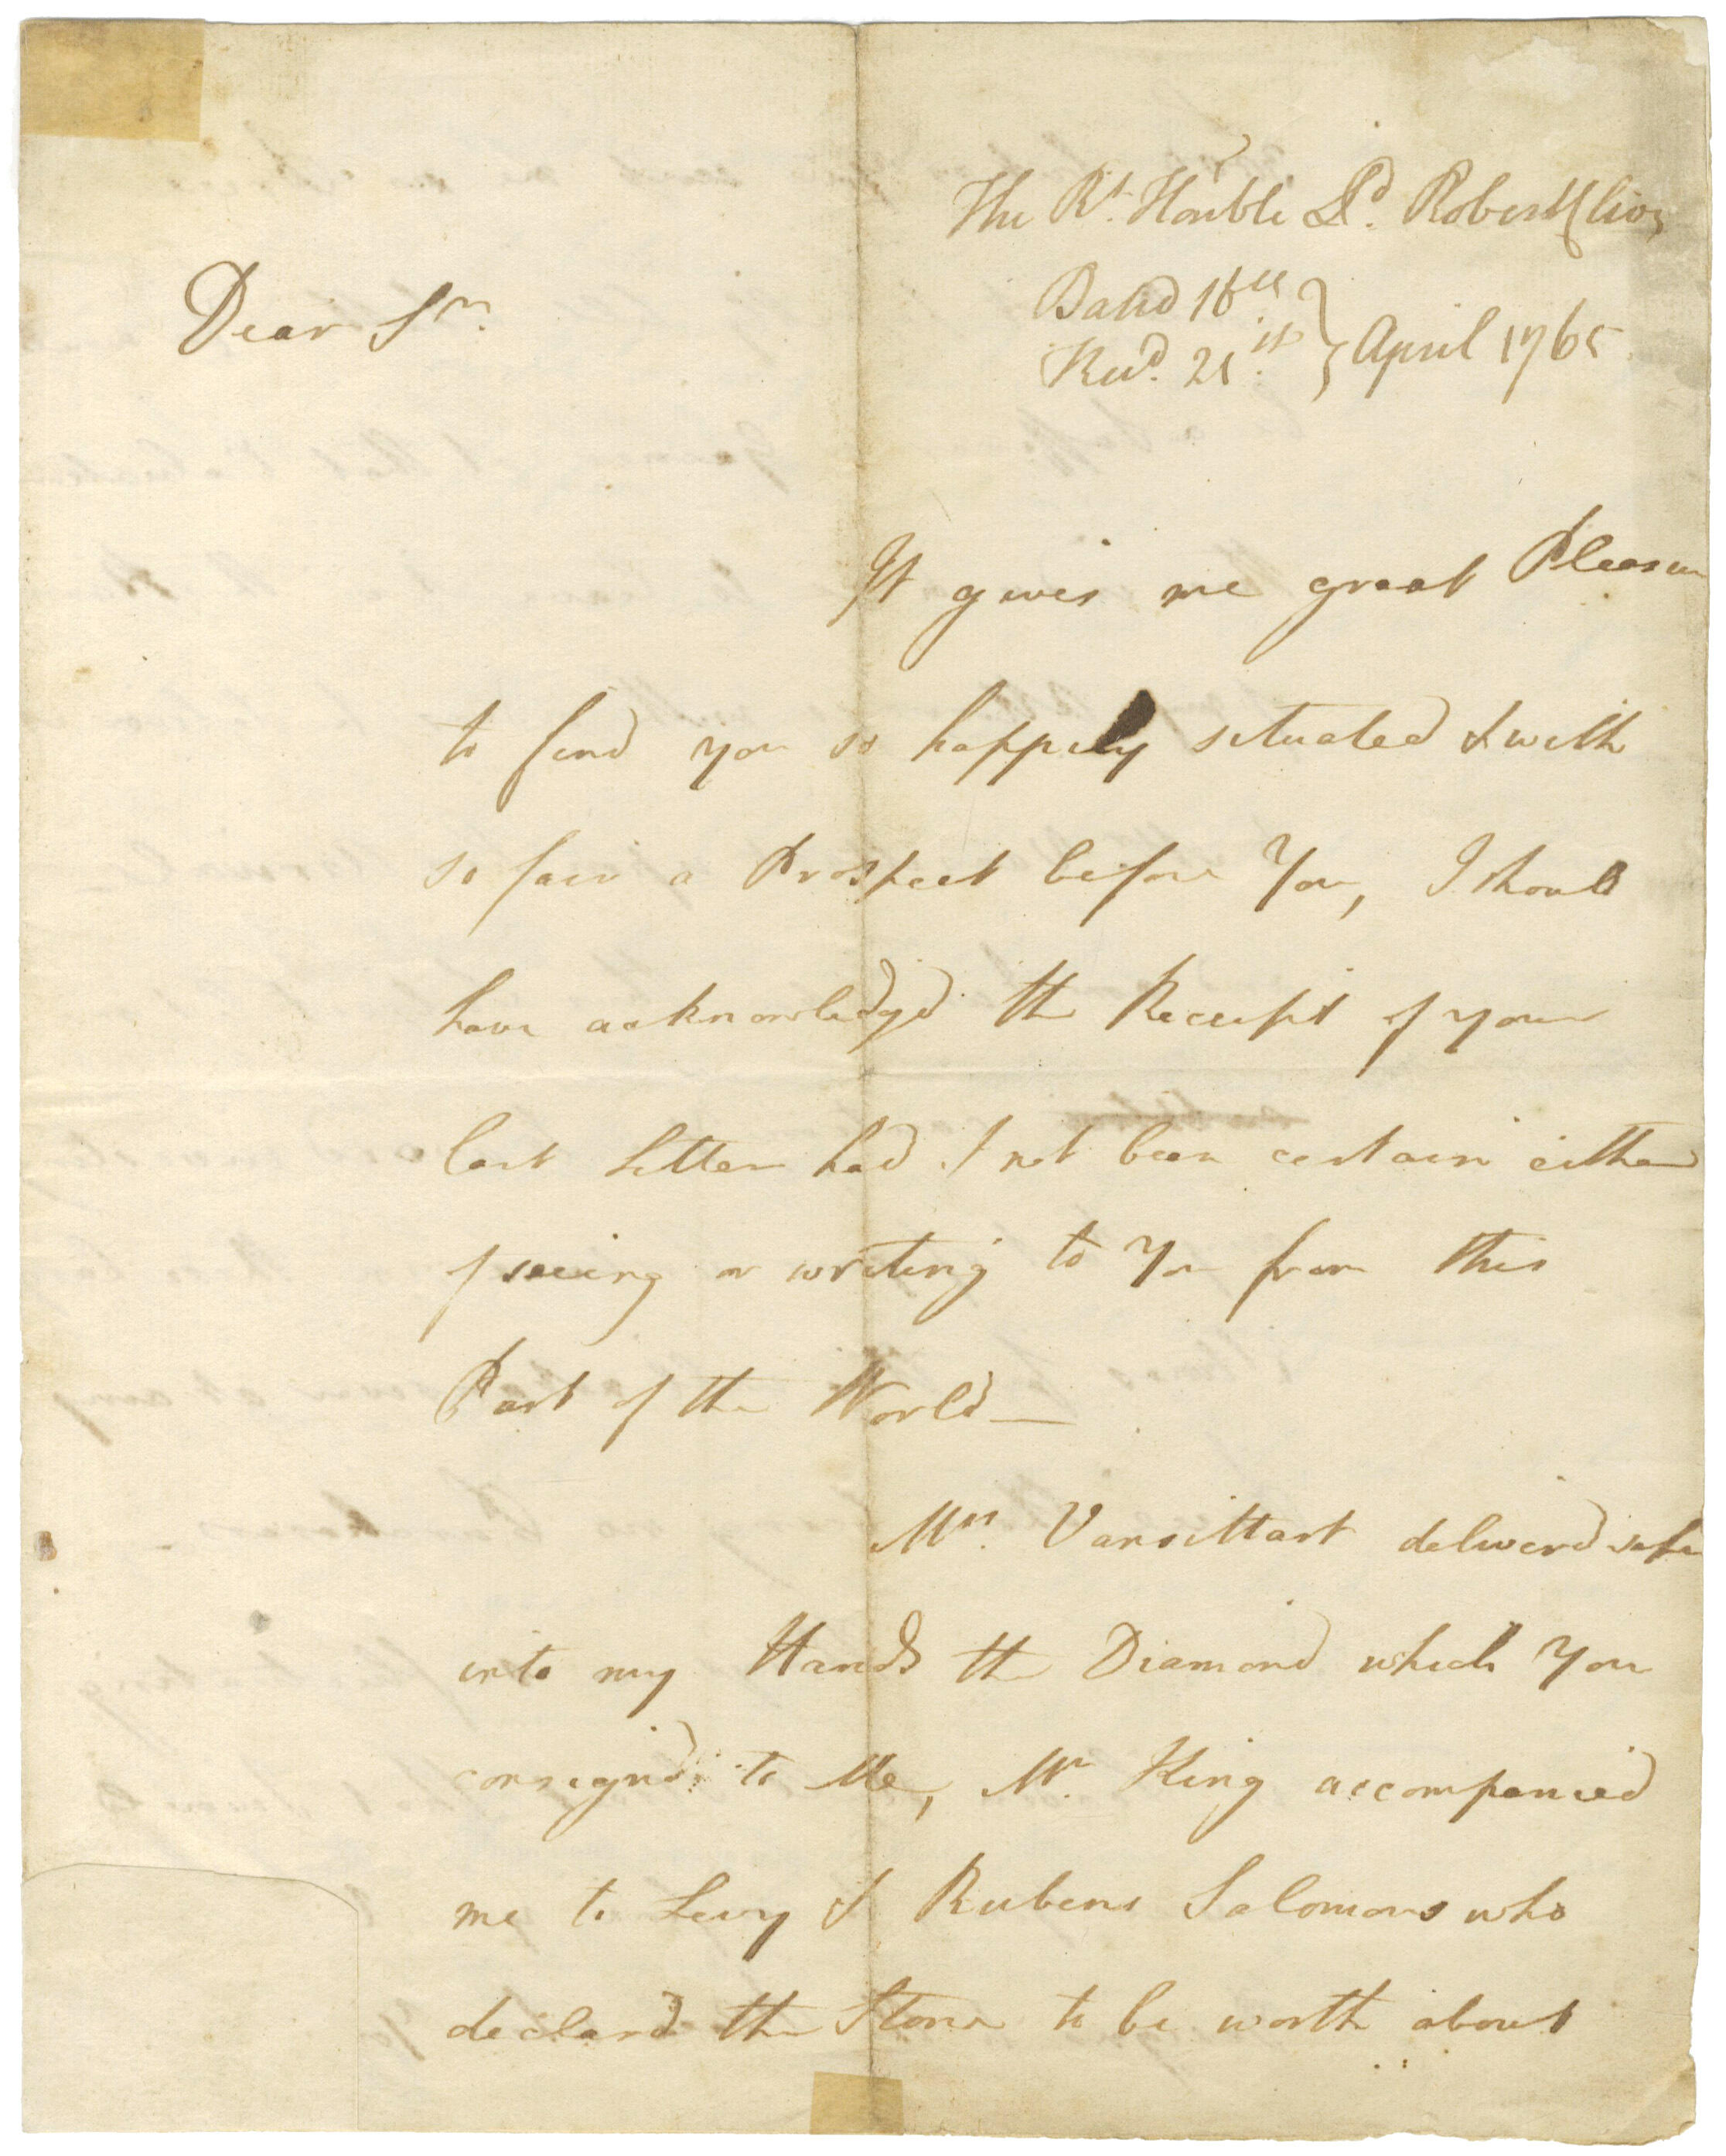 The Rt. Honble Ld. Robert Clive
Dated 16th
Recd. 21st } April 1765
Dear Sr.
It gives me great Pleasure
to find you so happily situated & with
so fair a Prospect before You, I should
have acknowledgd the Receipt of your
last Letter had I not been certain either
of seeing or writing to You from this
Part of the World—
Mrs. Vansittart deliverd safe
into my Hands the Diamond which You
consignd to Me, Mr. King accompanied
me to Levy & Rubens Salomons who
declard the Stone to be worth about